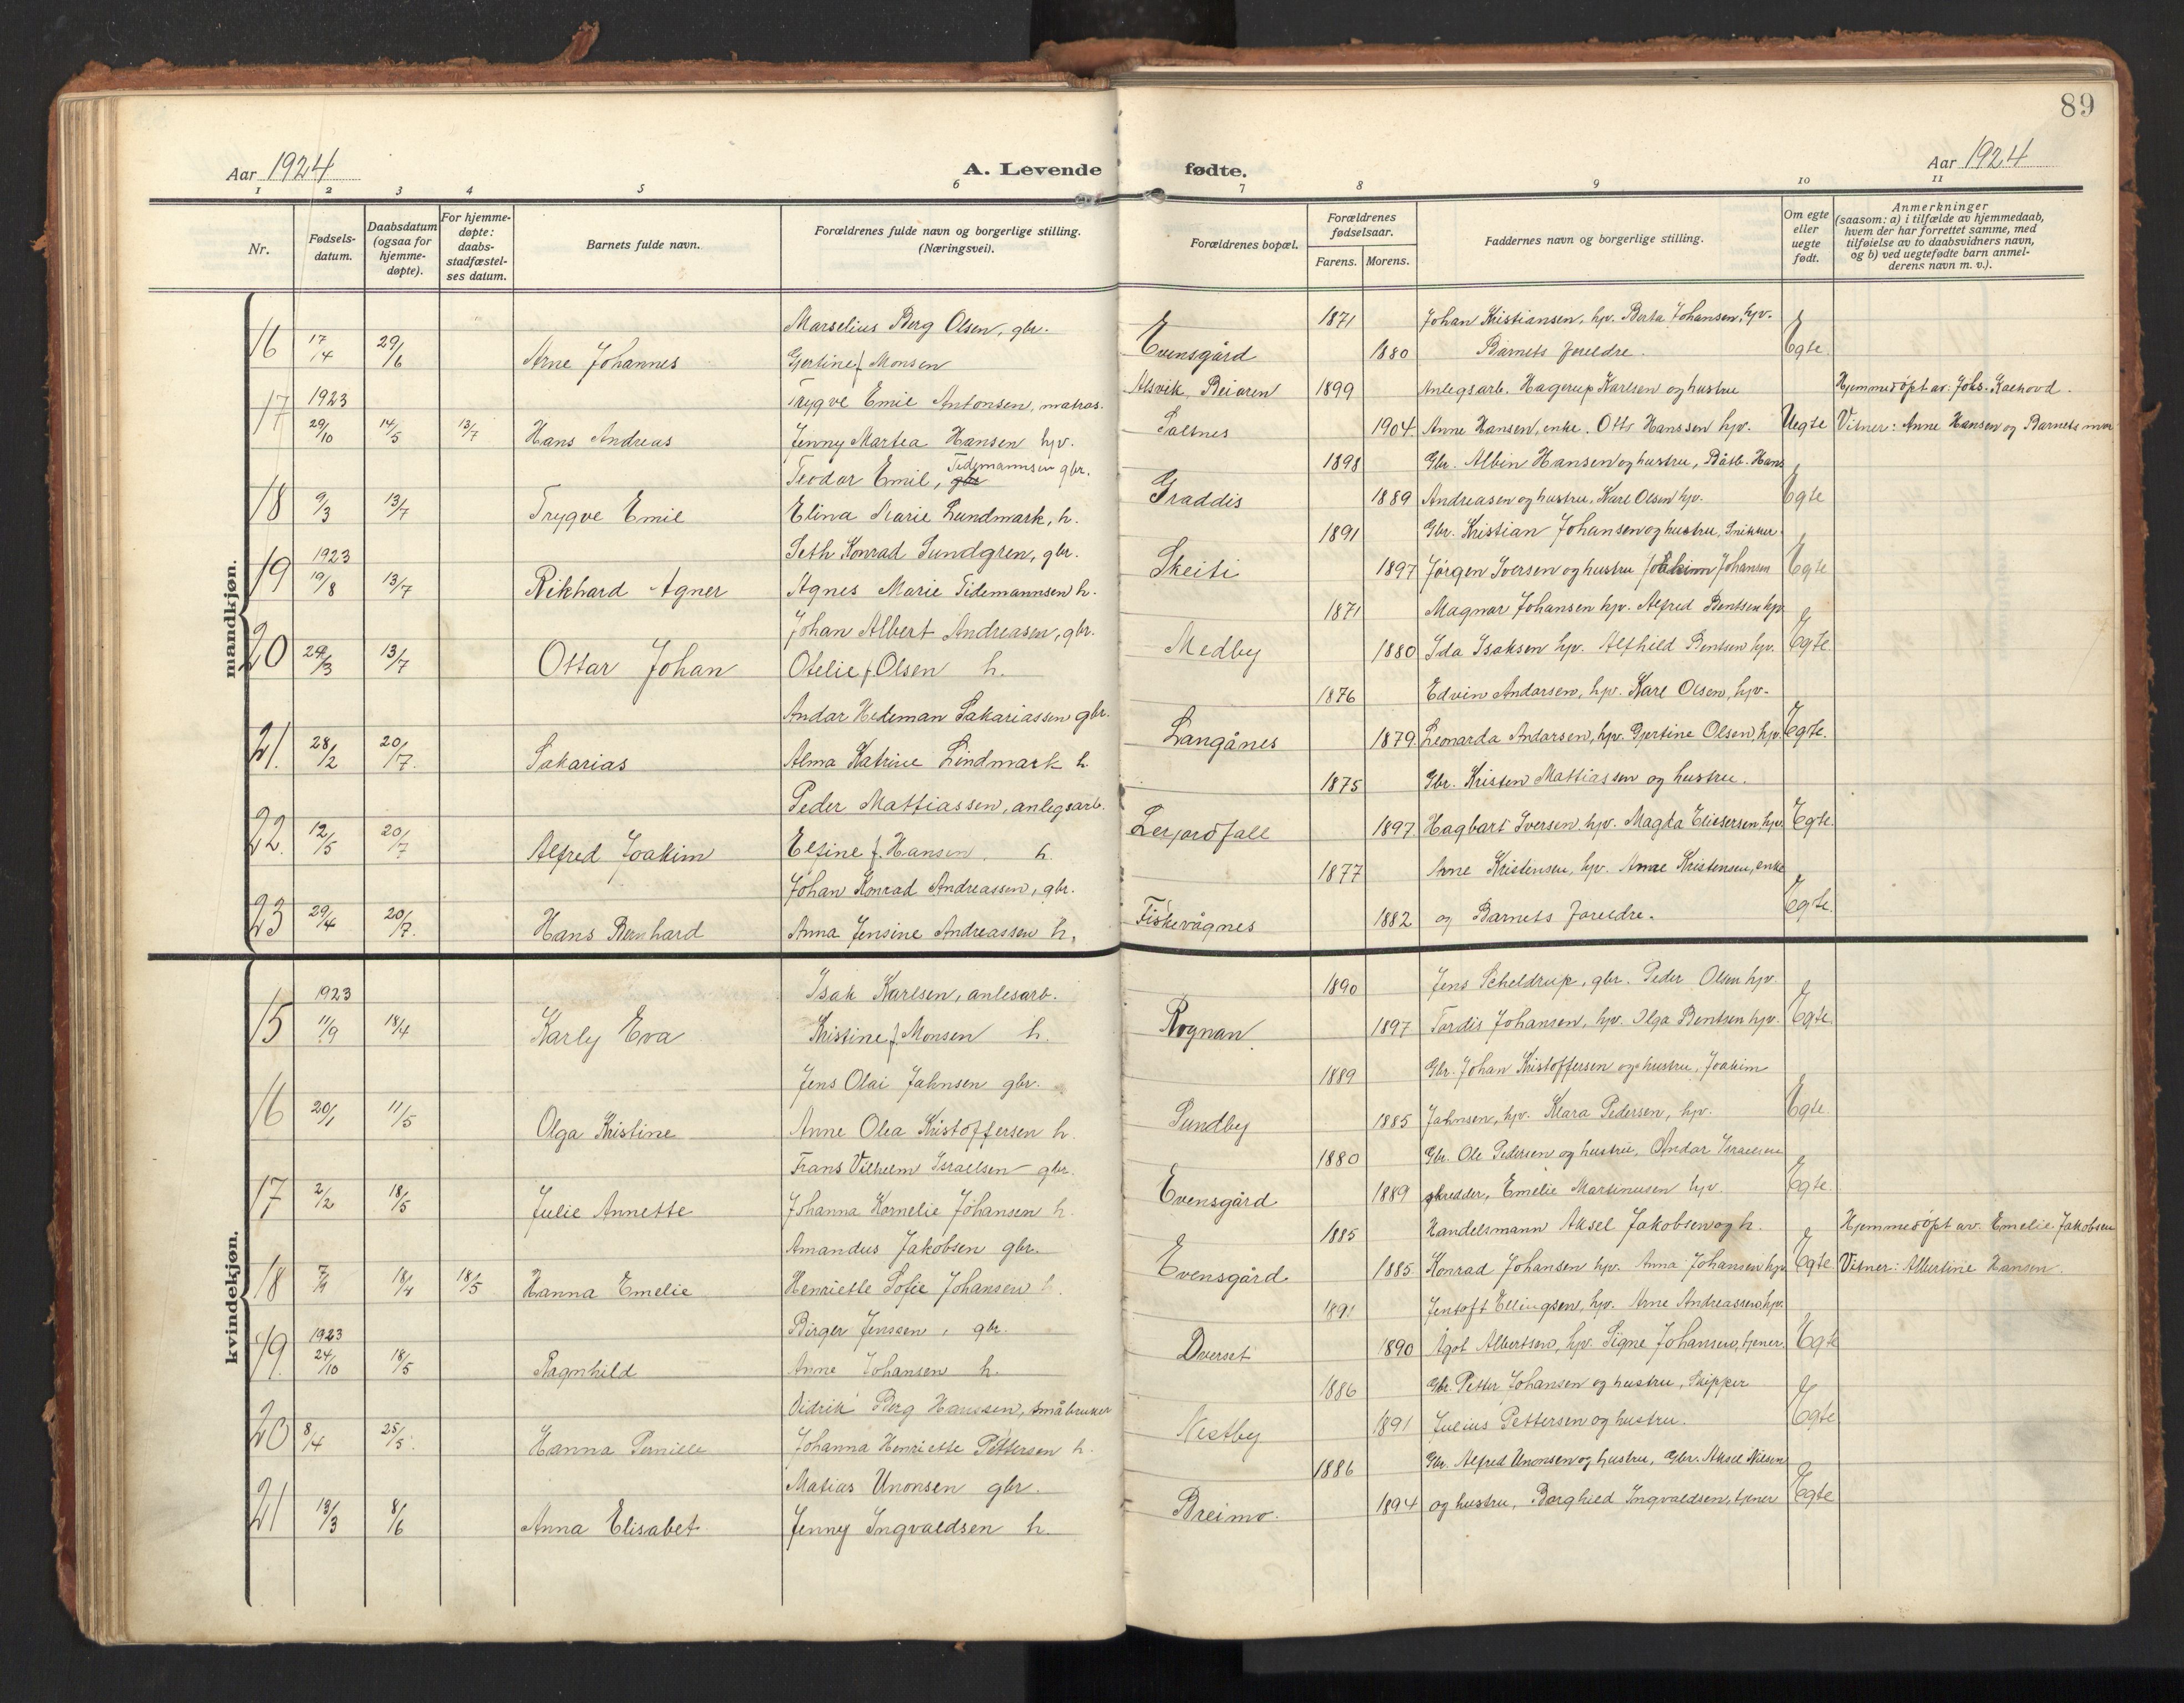 89
Aar 1924
A. Levende fødte.
Aar 1924
1 2 3 4 5 6 7 8 9 10 11
Nr.
Fødsels-
datum.
Daabsdatum
(ogsaa for
hjemme-
døpte).
For hjemme-
døpte:
daabs-
stadfæstel-
ses datum.
Barnets fulde navn.
Forældrenes fulde navn og borgerlige stilling.
(Næringsvei).
Forældrenes bopæl.
Forældrenes
fødselsaar.
Farens. Morens.
Faddernes navn og borgerlige stilling.
Om egte
eller
uegte
født.
Anmerkninger
(saasom: a) i tilfælde av hjemmedaab,
hvem der har forrettet samme, med
tilføielse av to daabsvidners navn,
og b) ved uegtefødte barn anmel-
derens navn m. v.).
mandkjøn.
Marselius Berg Olsen, gbr. 1871 Johan Kristiansen, hjv. Berta Johansen, hjv.
16 17/4 29/6 Arne Johannes Gjertine f. Monsen Evensgård 1880 Barnets foreldre. Egte.
1923 Trygve Emil Antonsen, matros. Alsvik, Beiaren 1899 Anlegsarb. Hagerup Karlsen og hustru Hjemmedøpt av: Johs.
17 29/10 14/5 13/7 Hans Andreas Jenny Martea Hansen hjv. Saltnes 1904. Anne Hansen, enke. Otto Hanssen hjv. Uegte Vitner: Anne Hansen og Barnets mor
Teodor Emil, Tidemannsen gbr. 1898 Gbr. Albin Hansen og hustru, Båtb. Hans
18 9/3 13/7 Trygve Emil Elina Marie Lundmark, h. Graddis 1889 Andreasen og hustru, Karl Olsen hjv. Egte
1923 Seth Konrad Sundgren, gbr. 1891 Gbr. Kristian Johansen og hustru, Snikker
19 19/8 13/7 Rikhard Agner Agnes Marie Tidemannsen h. Skeiti 1897 Jørgen Iversen og hustru Joakim Johansen Egte
Johan Albert Andreasen, gbr. 1871 Magnar Johansen hjv. Alfred Bentsen hjv.
20 29/3 13/7 Ottar Johan Otelie f. Olsen h. Medby 1880 Ida Isaksen hjv. Alfhild Bentsen hjv. Egte.
Andar Hedeman Sakariassen gbr. 1876 Edvin Andarsen, hjv. Karl Olsen, hjv.
21. 28/2 20/7. Sakarias Alma Katrine Lindmark h. Langånes 1879. Leonarda Andarsen, hjv. Gjertine Olsen, hjv. Egte.
Peder Mattiassen, anlegsarb. 1875 Gbr. Kristen Mattiassen og hustru.
22. 12/5 20/7 Alfred Joakim Elfine f. Hansen. h. Lerjordfall 1897 Hagbart Iversen hjv. Magda Eliesersen hjv. Egte.
Johan Konrad Andreassen, gbr. 1877 Arne Kristensen, hjv. Anne Kristensen, enke
23 29/4 20/7. Hans Bernhard Anna Jensine Andreassen h. Fiskevågnes 1882 og Barnets foreldre. Egte.
kvindekjøn.
1923 Isak Karlsen, anlesarb. 1890 Jens Scheldrup, gbr. Peder Olsen hjv.
15 11/9 18/4 Karly Eva Kristine f. Monsen h. Rognan 1897 Tordis Johansen, hjv. Olga Bentsen hjv. Egte.
Jens Olai Jahnsen gbr. 1889 Gbr. Johan Kristoffersen og hustru, Joakim
16 20/1 11/5 Olga Kristine Anne Olea Kristoffersen h. Sundby 1885 Jahnsen, hjv. Klara Pedersen, hjv. Egte.
Frans Vilhelm Israelsen gbr. 1880 Gbr. Ole Pedersen og hustru, Andor Israelsen
17 2/2 18/5 Julie Annette Johanna Kornelie Johansen h. Evensgård 1889 skredder, Emelie Martinusen hjv. Egte.
Amandus Jakobsen gbr. 1885 Handelsmann Aksel Jakobsen og h. Hjemmedøpt av Emelie Jakobsen
18 18/4 18/5 Hanna Emelie Henriette Sofie Johansen h. Evensgård 1885 Konrad Johansen hjv. Anna Johansen hjv. Egte Vitner: Albertine Hansen.
1923 Birger Jenssen, gbr. 1891 Jentoft Ellingsen, hjv. Arne Andreassen hjv.
19. 24/10 18/5 Ragnhild Anne Johansen h. Dverset 1890 Ågot Albertsen, hjv. Signe Johansen, tjener Egte
Didrik Berg Hanssen, småbruker 1886 Gbr. Petter Johansen og hustru, Skipper
20 8/4 25/5. Hanna Pernille Johanna Henriette Pettersen h. Nestby 1891 Julius Pettersen og hustru. Egte
Matias Unonsen gbr. 1886 Gbr. Alfred Unonsen og hustru, Gbr. Aksel Nilsen
21 13/3 8/6 Anna Elisabet Jenny Ingvaldsen h. Breimo. 1894 og hustru, Borghild Ingvaldsen, tjener Egte